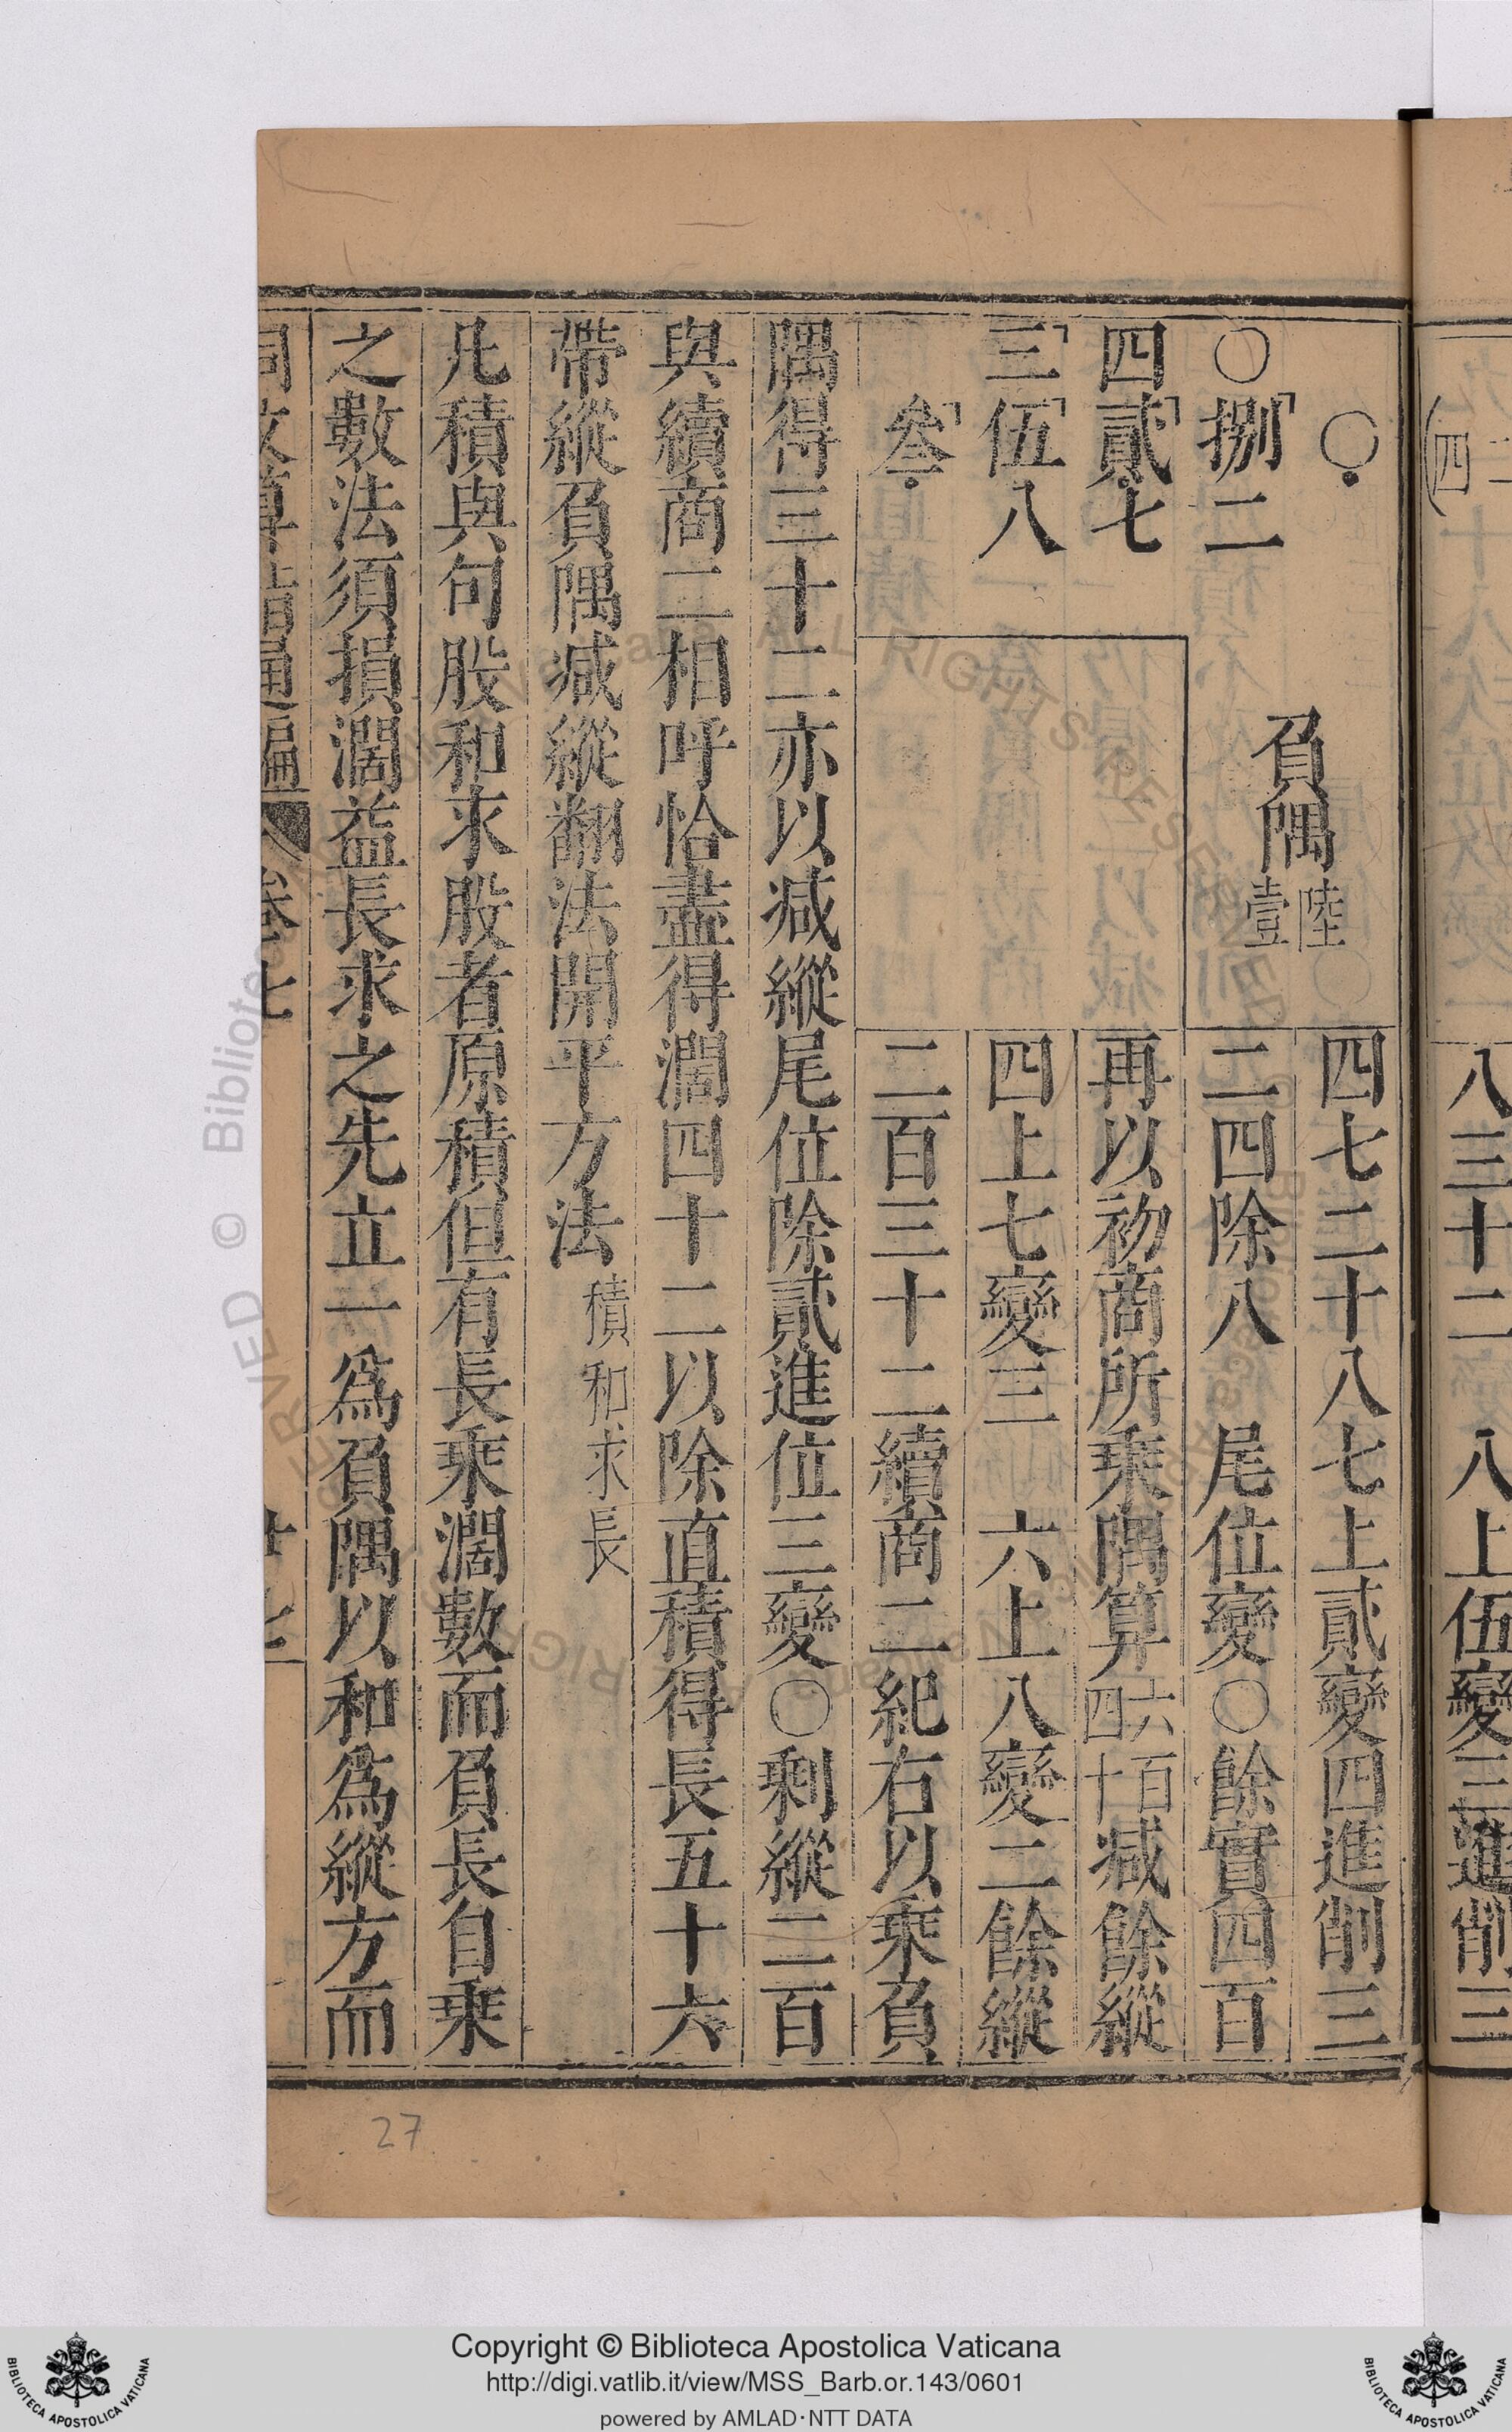 八三十二　八上伍變三進削三
四
○
○捌二
四貳七
三伍八
叄
負隅
陸
壹
四七二十八七上貳變四進削三
二四除八　尾位變○餘實四百
再以初商所乘隅算六百四十減餘縱
四上七變三　六上八變二餘縱
二百三十二續商二紀右以乘負
隅得三十二亦以減縱尾位除貳進位三變○剩縱二百
與續商二相呼恰盡得濶四十二以除直積得長五十六
帶縱負隅減縱翻法開平方法積和求長
凡積與句股和求股者原積但有長乘濶數而負長自乘
之數法須損濶益長求之先立一為負隅以和為縱方而
同文算指通編　卷七　廿七
27
Copyright © Biblioteca Apostolica Vaticana
http://digi.vatlib.it/view/MSS_Barb.or.143/0601
powered by AMLAD·NTT DATA
BIBLIOTECA APOSTOLICA VATICANA
BIBLIOTECA APOSTOLICA VATICANA